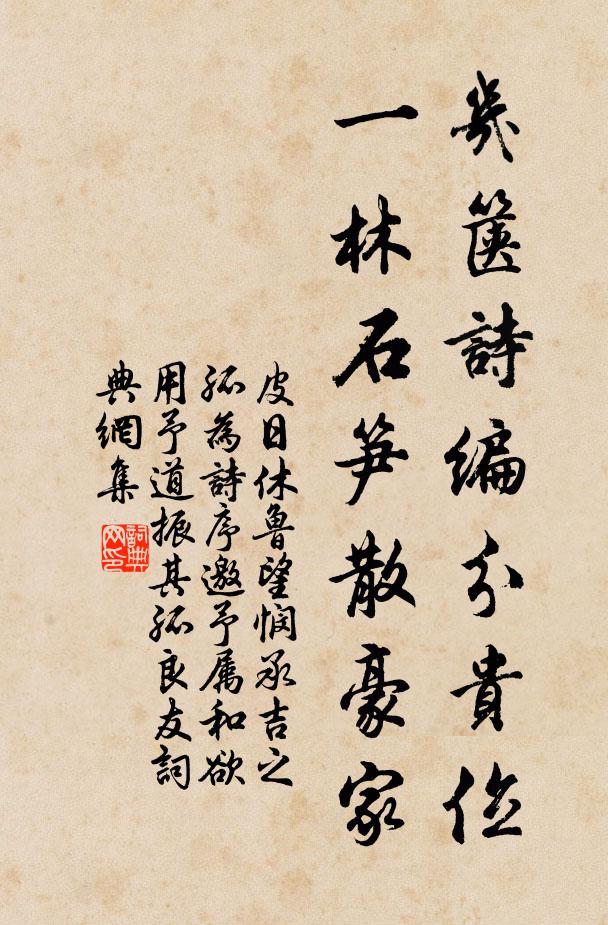 幾篋詩編分貴位
一林石笋散豪家
皮日休魯望憫承吉之
孤為詩序邀予屬和欲
用予道振其孤良友詞
典網集
詞典
网印